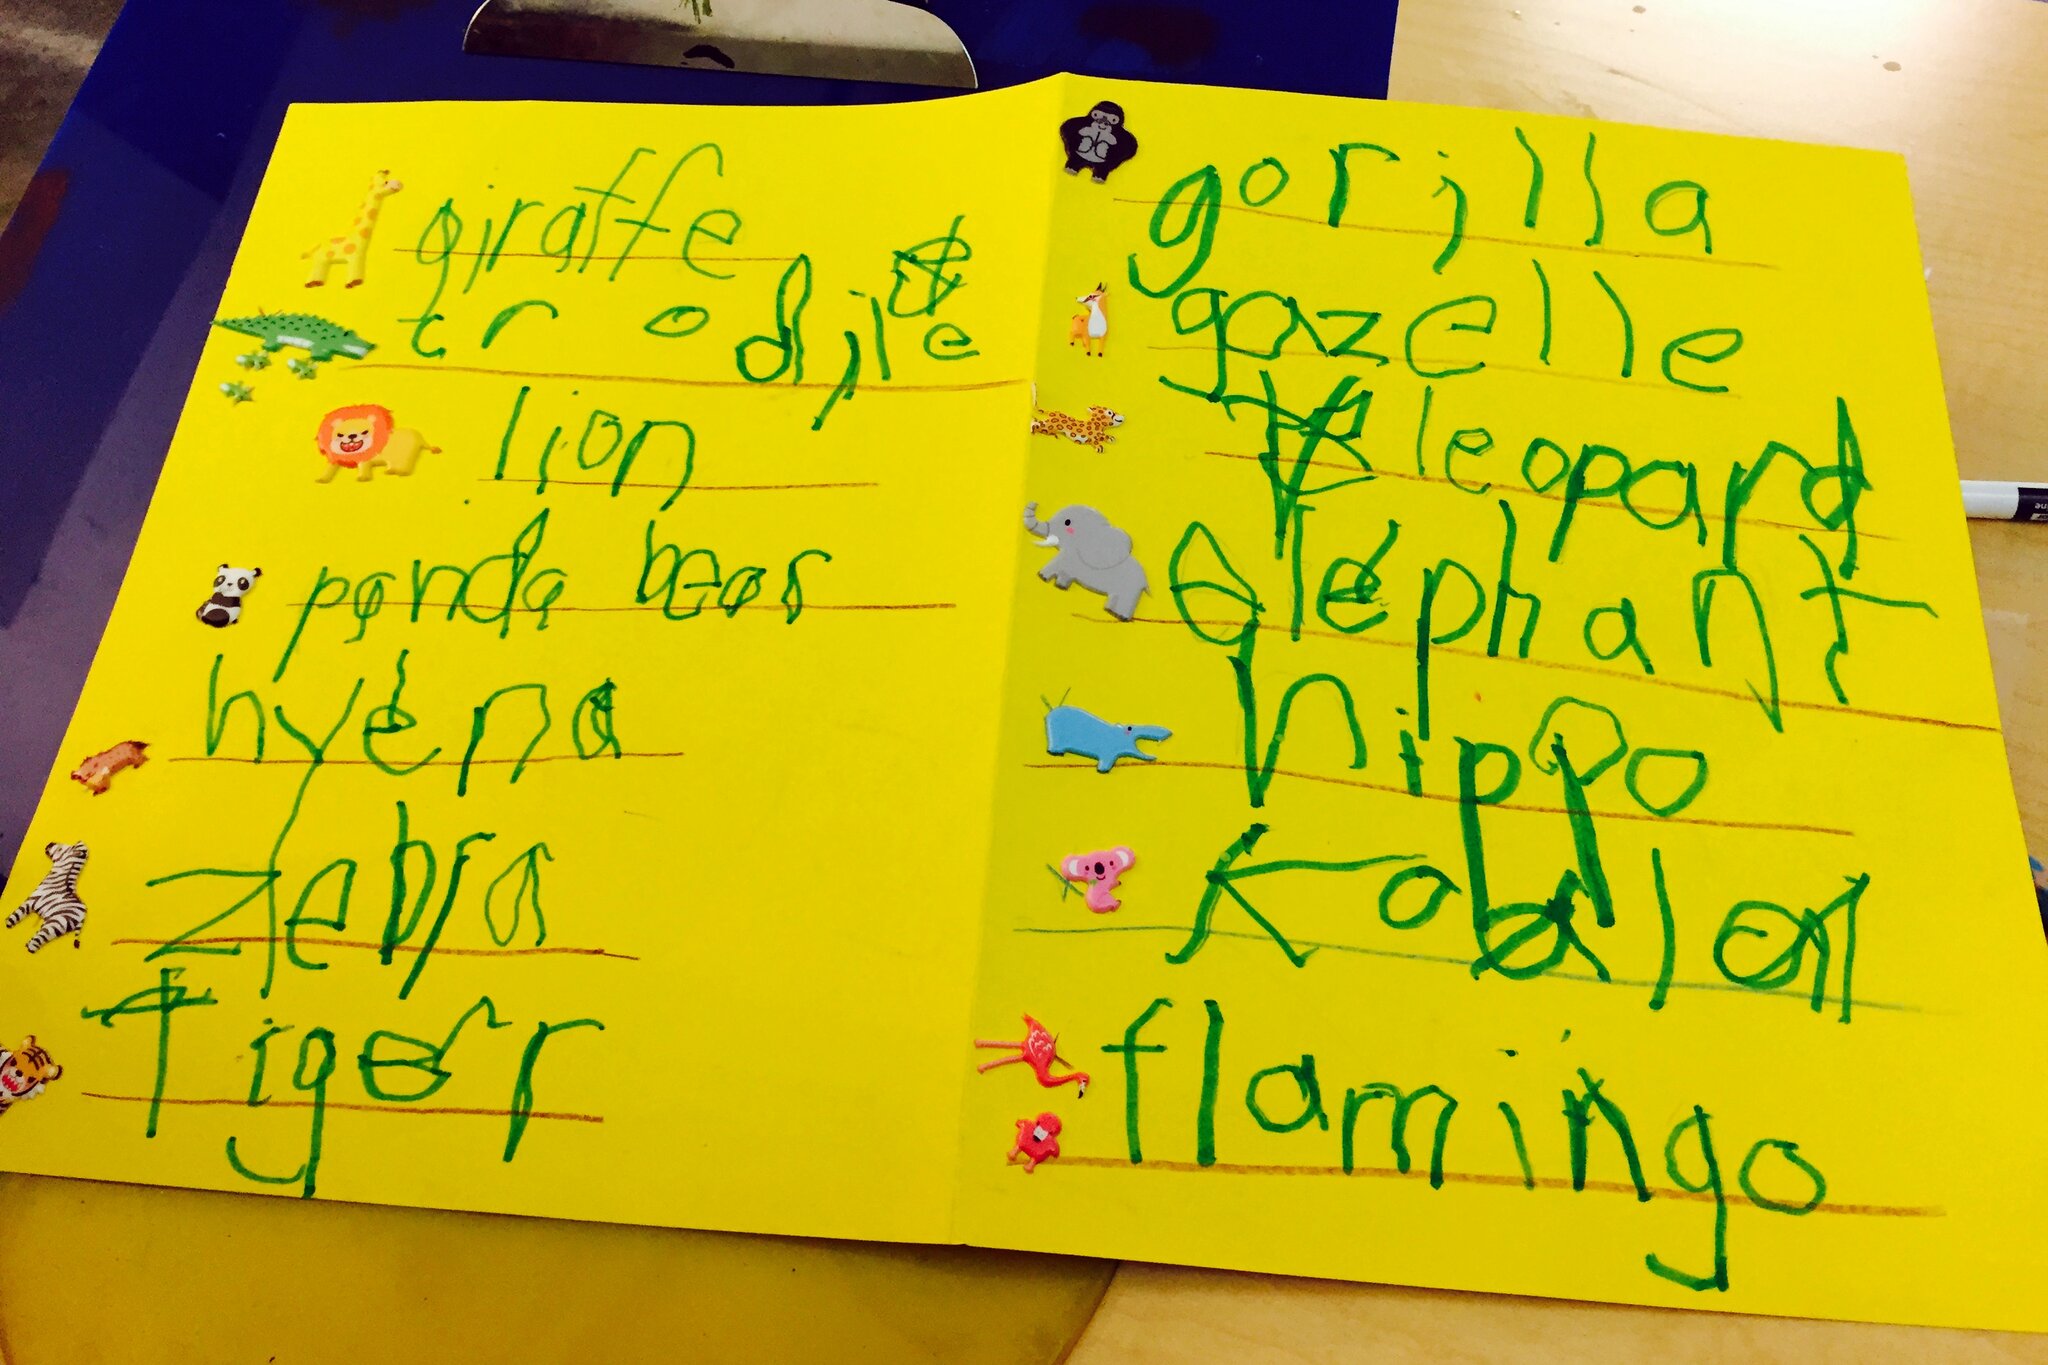 giraffe
crodjle
lion
panda bear
hyena
zebra
Tiger
gorjlla
gazelle
leopard
elephant
hippo
koala
flamingo